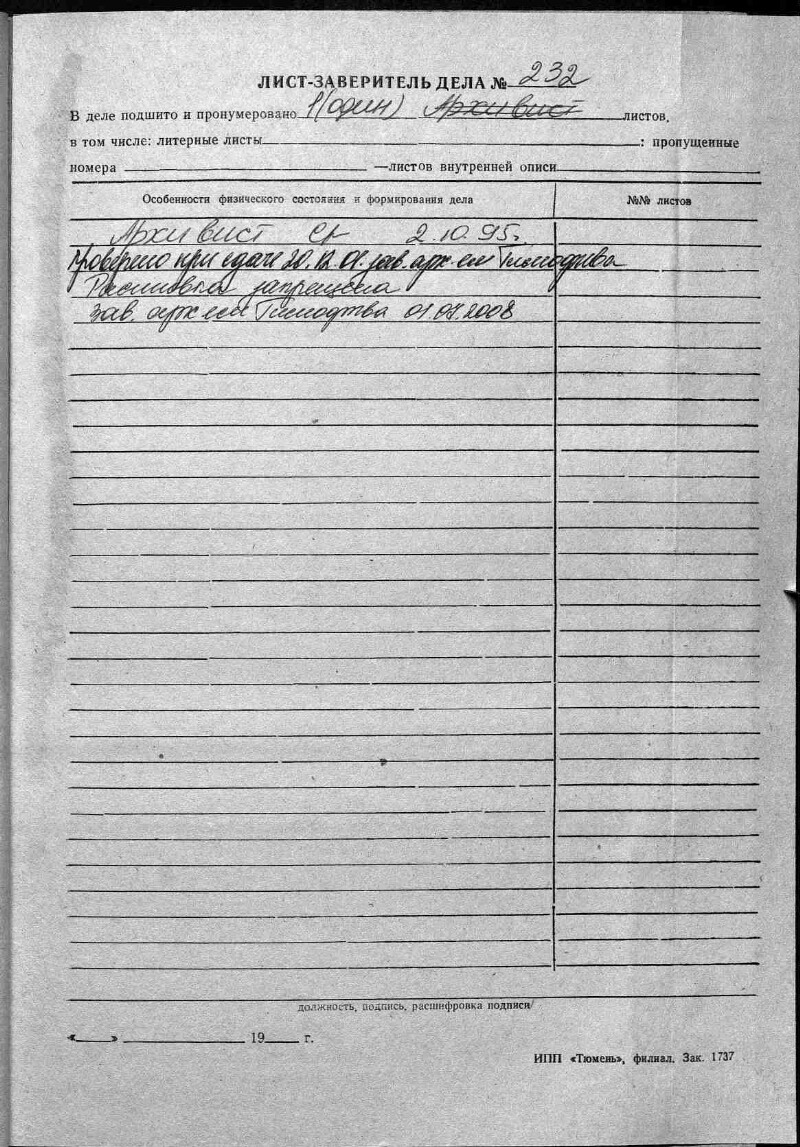 ЛИСТ-ЗАВЕРИТЕЛЬ ДЕЛА № 232
В деле подшито и пронумеровано 1 (один) Архивист листов,
в том числе: литерные листы : пропущенные
номера —листов внутренней описи
Особенности физического состояния и формирования дела
№№ листов
Архивист 2.10.95г.
Проверено при сдаче 20.12.01. зав. арх.
запрещена
зав. арх 2008
должность, подпись, расшифровка подписи/
« » 19 г.
ИПП «Тюмень», филиал. Зак. 1737